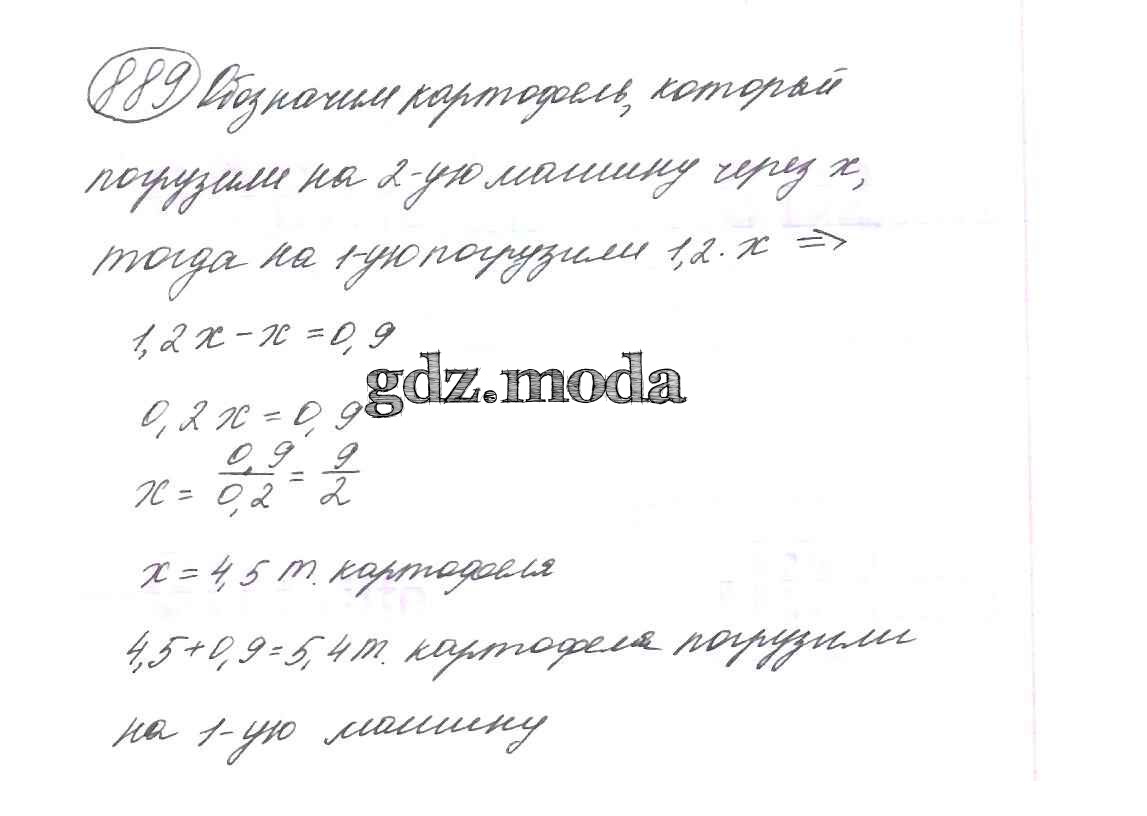 889 Обозначим картофель, который
погрузили на 2-ую машину через x,
тогда на 1-ую погрузили 1,2·x ⇒
1,2x - x = 0,9
gdz.moda
0,2x = 0,9
x = 0,9/0,2 = 9/2
x = 4,5 т. картофеля
4,5+0,9=5,4т. картофеля погрузили
на 1-ую машину